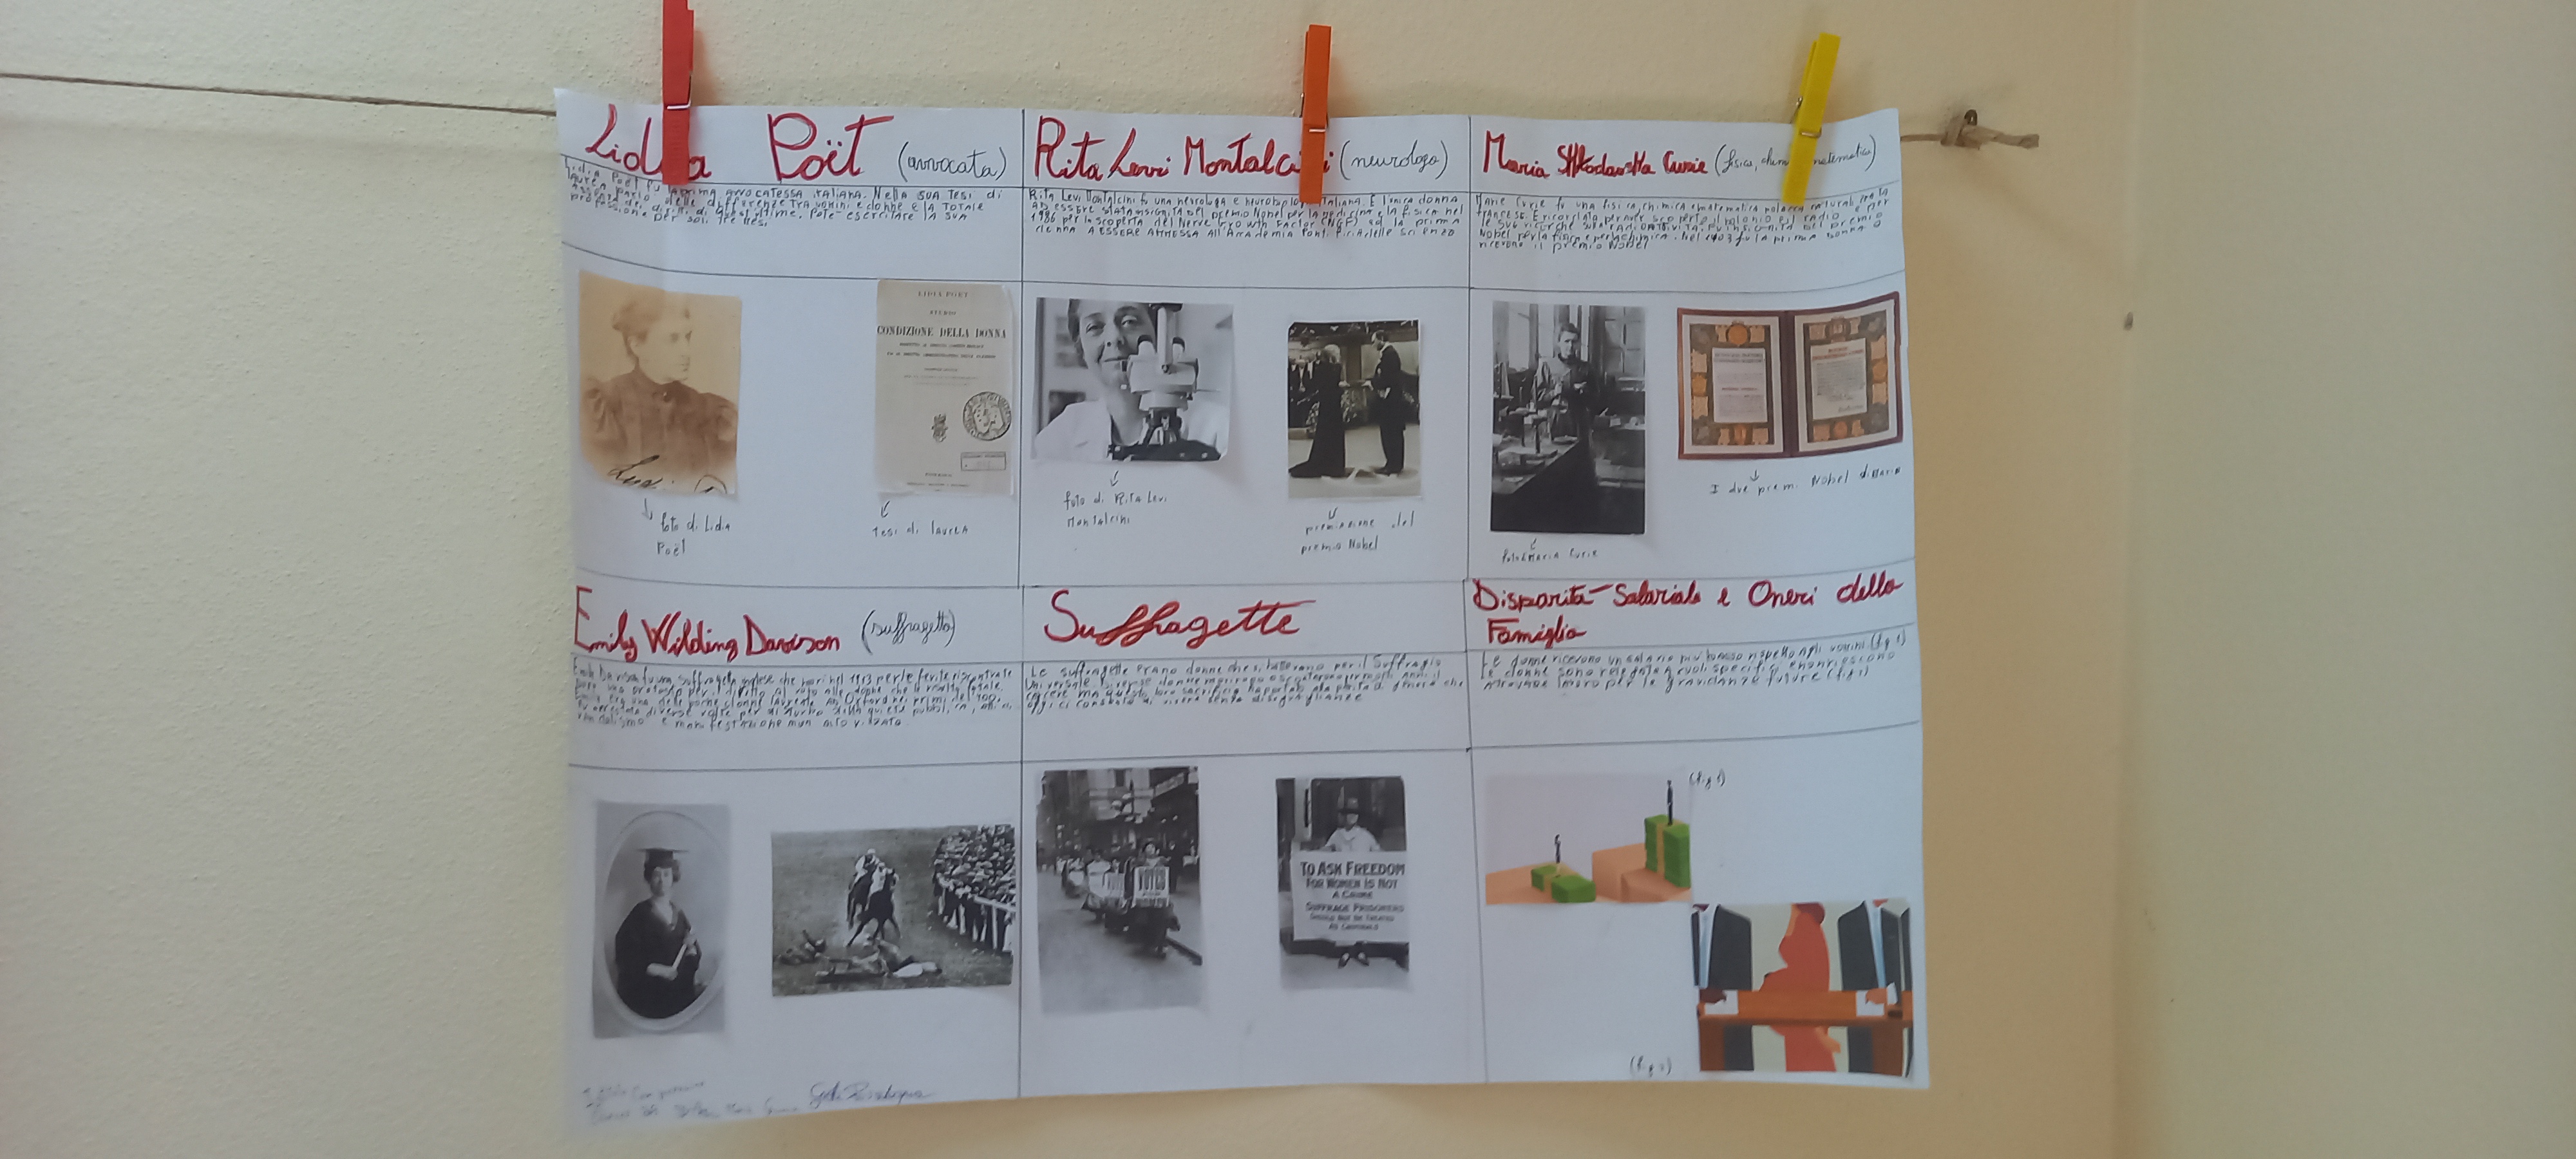 Lidia Poët (avvocata)
Lidia Poët fu la prima avvocatessa italiana. Nella sua tesi di
laurea parlò delle differenze tra uomini e donne e la totale
assenza dei diritti di quest'ultime. Poté esercitare la sua
professione per soli tre mesi
foto di Lidia
Poët
LIDIA POËT
STUDIO
CONDIZIONE DELLA DONNA
tesi di laurea
Rita Levi Montalcini (neurologa)
Rita Levi Montalcini fu una neurologa e neurobiologa italiana. È l'unica donna
ad essere stata insignita del premio Nobel per la medicina e la fisica nel
1986 per la scoperta del Nerve Growth Factor (NGF) ed la prima
donna a essere ammessa all'Accademia Pontificia delle Scienze
foto di Rita Levi
Montalcini
premiazione del
premio Nobel
Maria Skłodowska Curie (fisica, chimica, matematica)
Marie Curie fu una fisica, chimica e matematica polacca naturalizzata
francese. È ricordata per aver scoperto il polonio e il radio e per
le sue ricerche sulla radioattività. Fu insignita del premio
Nobel per la fisica e per la chimica. Nel 1903 fu la prima donna a
ricevere il premio Nobel
foto Maria Curie
I due premi Nobel di Maria
Emily Wilding Davison (suffragetta)
una suffragetta inglese che morì nel 1913 per le ferite riscontrate
per una protesta per il diritto al voto alle donne
una delle poche donne laureate ad Oxford nei primi del '900.
Fu arrestata diverse volte per disturbo della quiete pubblica,
vandalismo e manifestazione non autorizzata
Suffragette
Le suffragette erano donne che si battevano per il Suffragio
Universale. Diverse donne morirono o scontarono molti anni il
carcere ma questo loro sacrificio ha portato alla parità di genere che
oggi ci consente di vivere senza disuguaglianze
VOTES
TO ASK FREEDOM
FOR WOMEN IS NOT
A CRIME
SUFFRAGE PRISONERS
SHOULD NOT BE TREATED
AS CRIMINALS
Disparità Salariale e Oneri della
Famiglia
Le donne ricevono un salario più basso rispetto agli uomini (fig 1)
Le donne sono relegate a ruoli specifici e non riescono
a trovare lavoro per le gravidanze future
(fig 1)